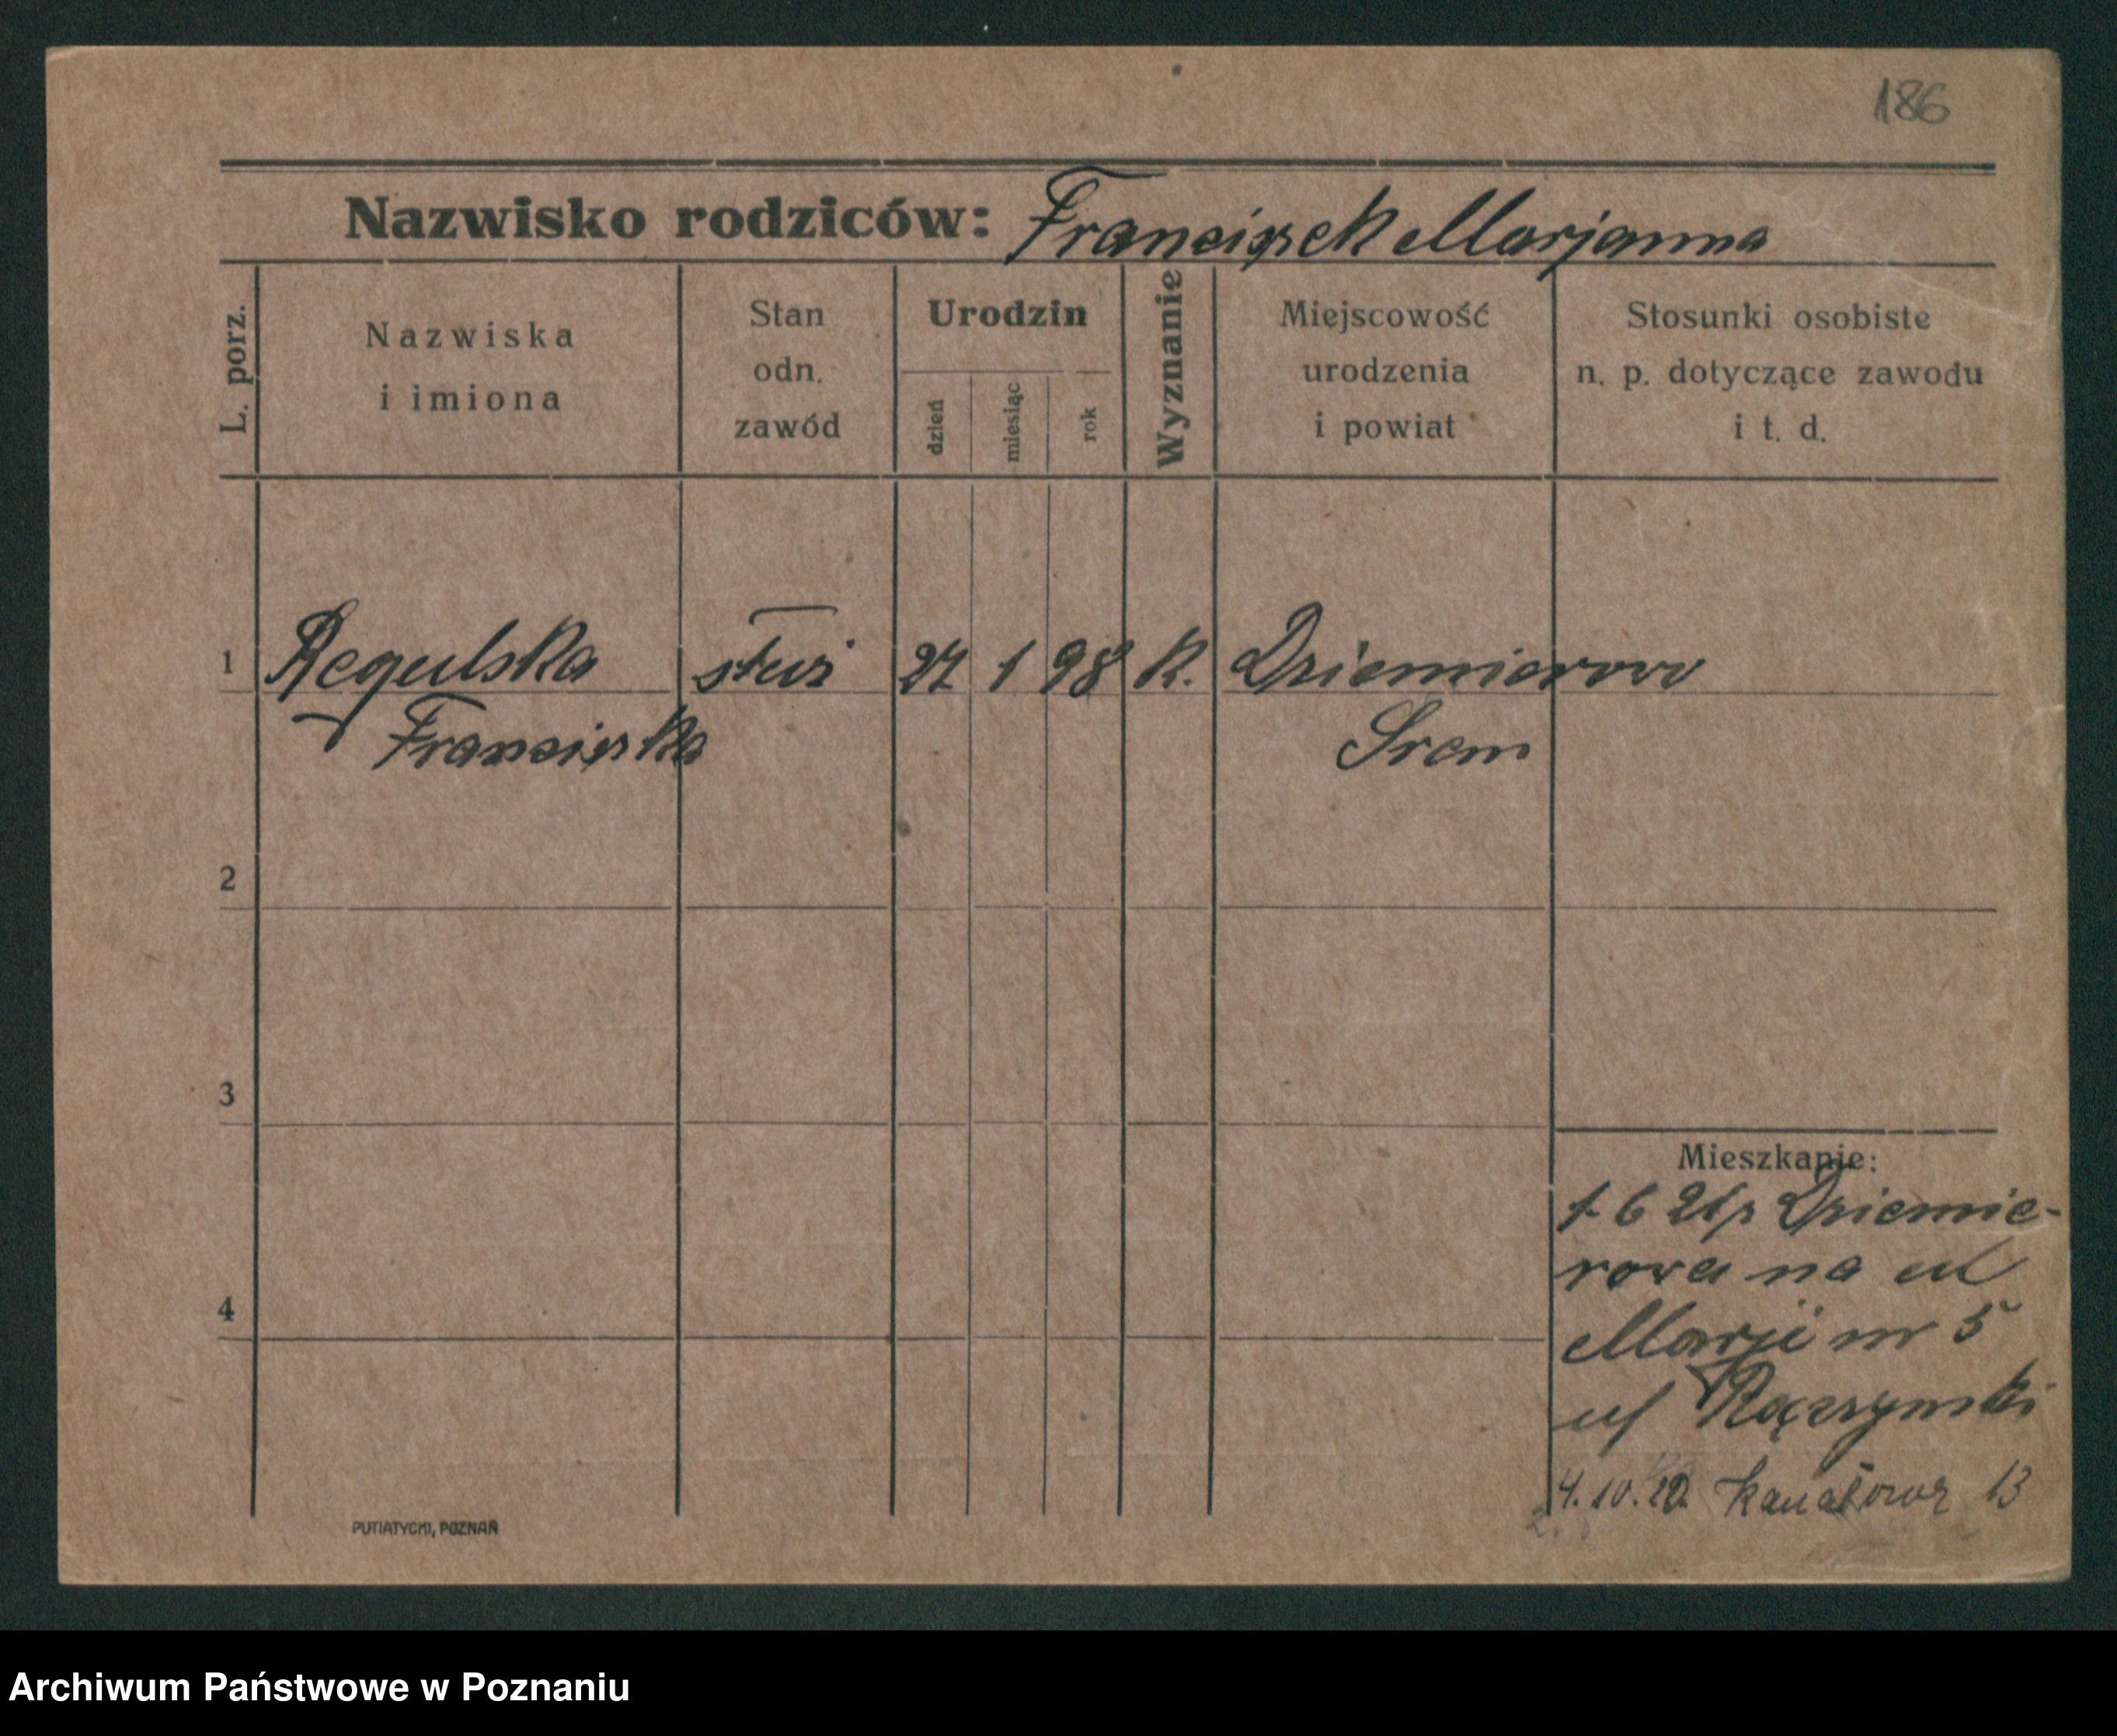 186
Nazwisko rodziców: Franciszek Marjanna
L. porz.
Nazwiska
i imiona
Stan
odn.
zawód
Urodzin
dzień
miesiąc
rok
Wyznanie
Miejscowość
urodzenia
i powiat
Stosunki osobiste
n. p. dotyczące zawodu
i t. d.
1 Regulska służ 27 1 98 k. Dziemierowo
Franciszka Srem
2
3
4
Mieszkanie:
1 6 21 z Dziemie-
rowa na ul
Marji nr 5
Raczynski
4.10.20. Kanałowa 13
PUTIATYCKI, POZNAŃ
Archiwum Państwowe w Poznaniu